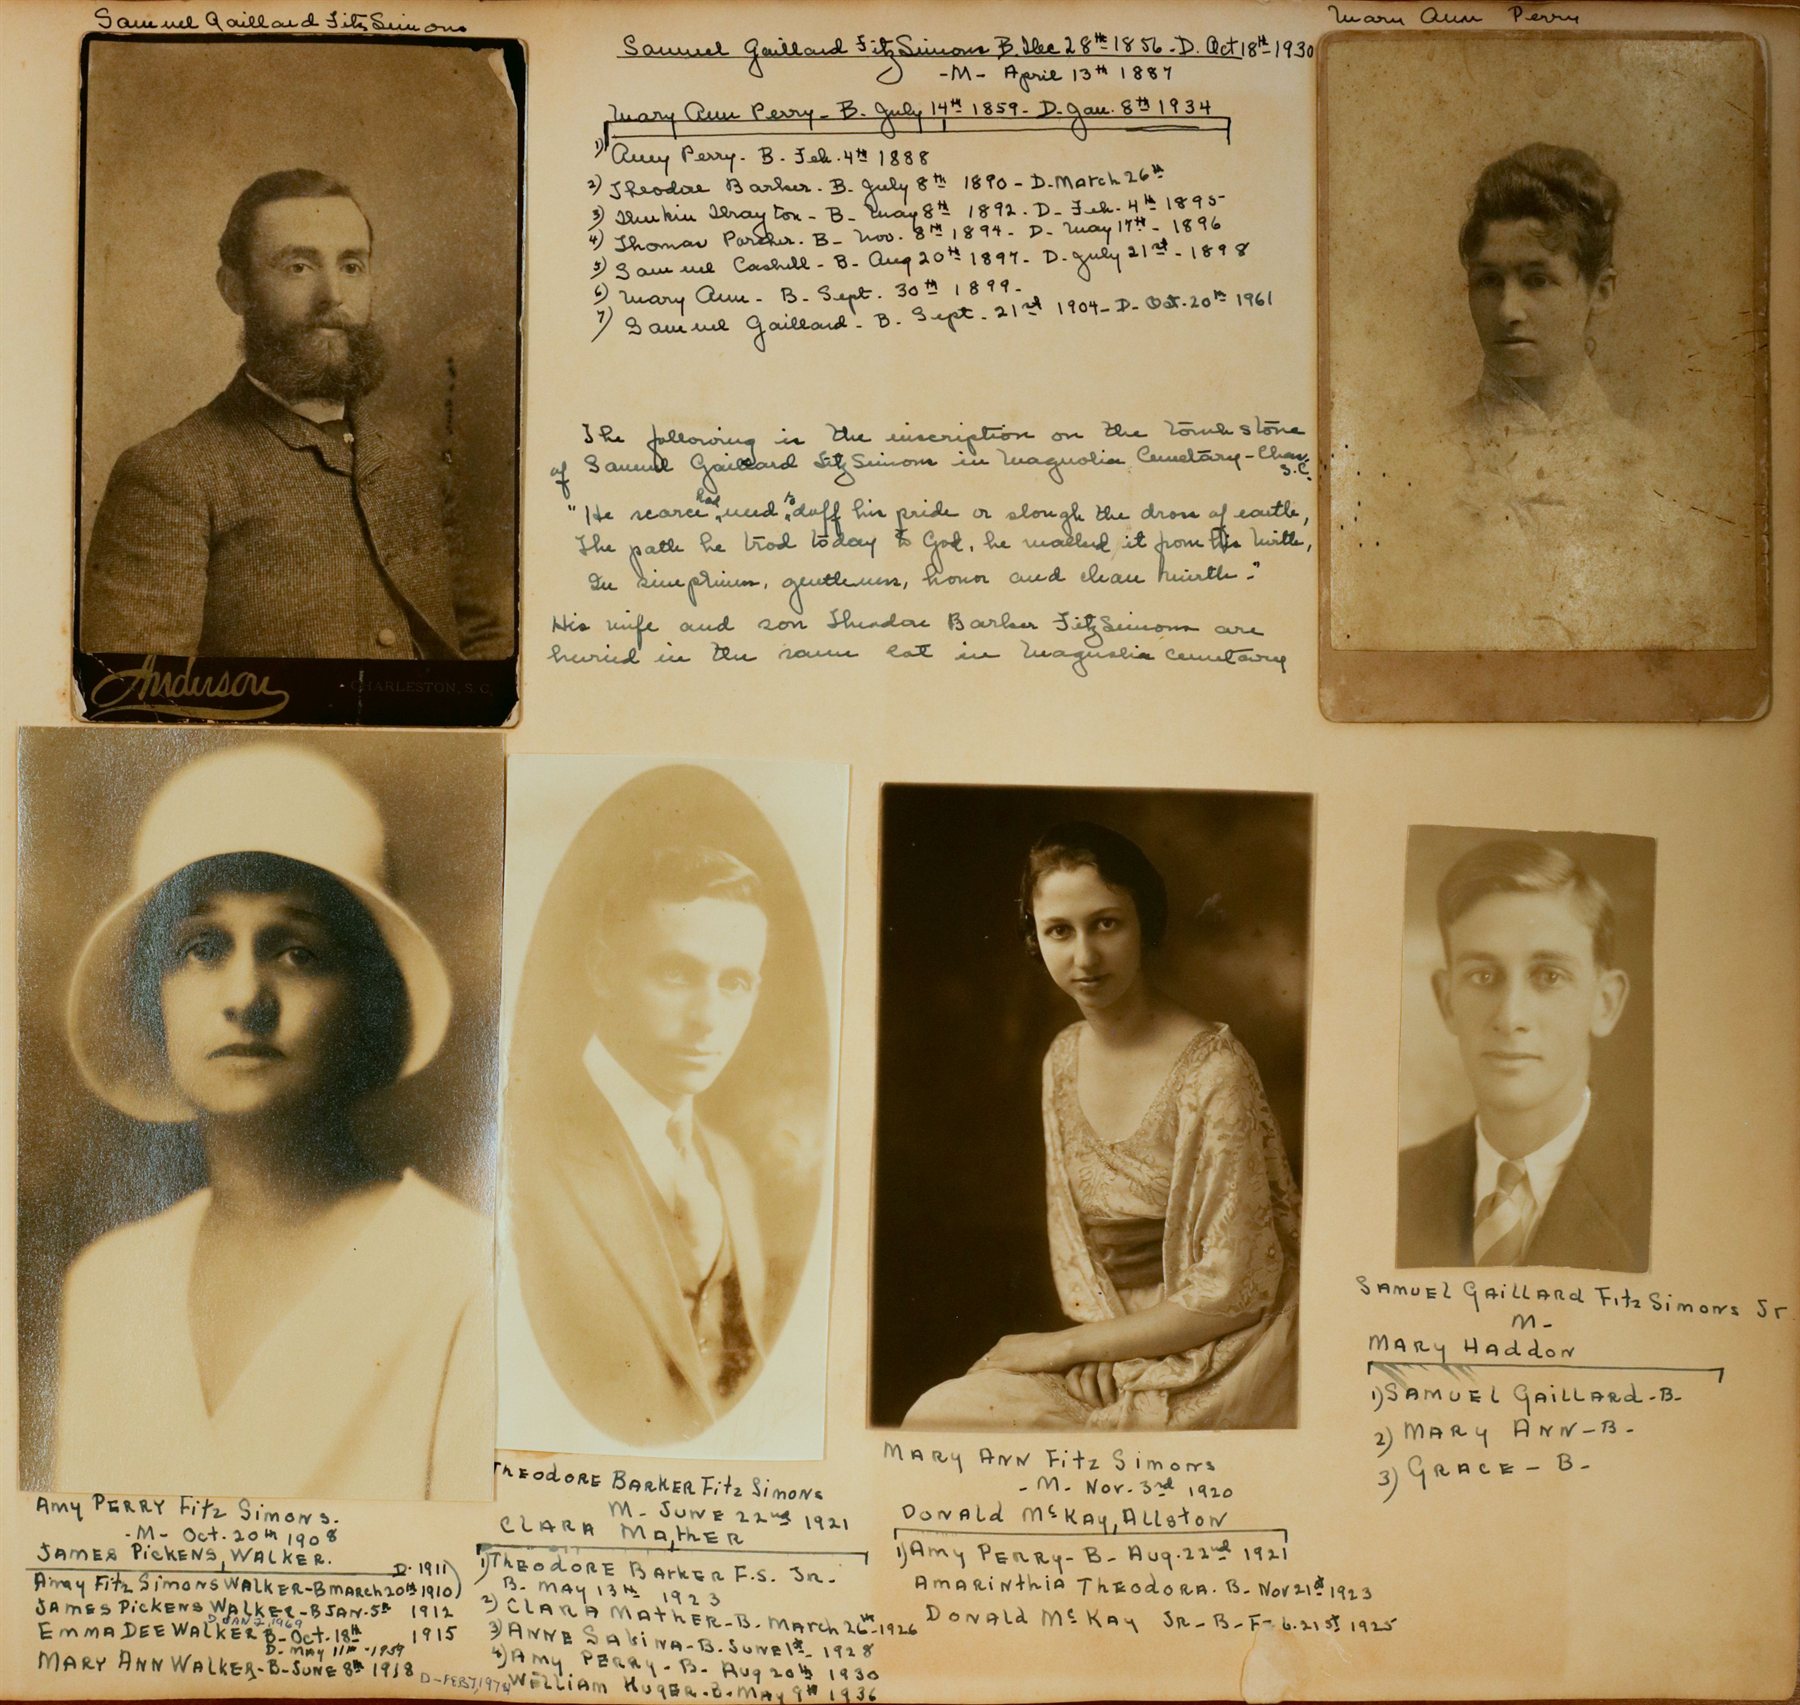 Samuel Gaillard FitzSimons
Mary Ann Perry
Samuel Gaillard FitzSimons B. Dec 28th 1856 - D. Oct 18th 1930
- M - April 13th 1887
Mary Ann Perry - B. July 14th 1859 - D. Jan. 8th 1934
1) Amy Perry - B. Feb. 4th 1888
2) Theodore Barker - B. July 8th 1890 - D. March 26th
3) Drayton - B - May 8th 1892 - D - Feb. 4th 1895
4) Thomas Porcher - B - Nov. 8th 1894 - D - May 17th - 1896
5) Samuel Cashell - B - Aug 20th 1897 - D. July 21st - 1898
6) Mary Ann - B - Sept. 30th 1899 -
7) Samuel Gaillard - B - Sept. 21st 1904 - D - Oct. 20th 1961
The following is the inscription on the tomb stone
of Samuel Gaillard FitzSimons in Magnolia Cemetary - Chas. S.C.
"He scarce had need to doff his pride or slough the dross of earth,
The path he trod today to God, he walked it from his birth,
In simpleness, gentleness, honor and clean mirth."
His wife and son Theodore Barker FitzSimons are
buried in the same lot in Magnolia Cemetary
Anderson
CHARLESTON, S. C.
Amy PERRY Fitz Simons.
- M - Oct. 20th 1908
JAMES PicKENS WALKER.
Amay Fitz Simons WALKER - B MARCH 20th 1910) D. 1911
JAMES PicKENS WALKER - B JAN. 5th 1912
D JAN 2, 1969
EMMA DEE WALKER B - Oct. 18th 1915
D - MAY 11th - 1959
MARY ANN WALKER - B - JUNE 8th 1918 D - FEB 7, 1974
THEODORE BARKER Fitz Simons
M - JUNE 22nd 1921
CLARA MATHER
1) THEODORE BARKER F.S. JR.
B - MAY 13th 1923
2) CLARA MATHER - B - MARCH 26th - 1926
3) ANNE SABINA - B - JUNE 1st - 1928
4) AMY PERRY - B - Aug 20th 1930
WILLIAM HUGER - B - MAY 9th 1936
MARY ANN Fitz Simons
- M - Nov. 3rd 1920
DONALD McKAY, ALLSTON
1) AMY PERRY - B - Aug. 22nd 1921
AMARINTHIA THEODORA. B - NOV 21st 1923
DONALD McKAY JR - B - 21st 1925
SAMUEL GAILLARD Fitz Simons Jr
M -
MARY HADDON
1) SAMUEL GAILLARD - B -
2) MARY ANN - B -
3) GRACE - B -